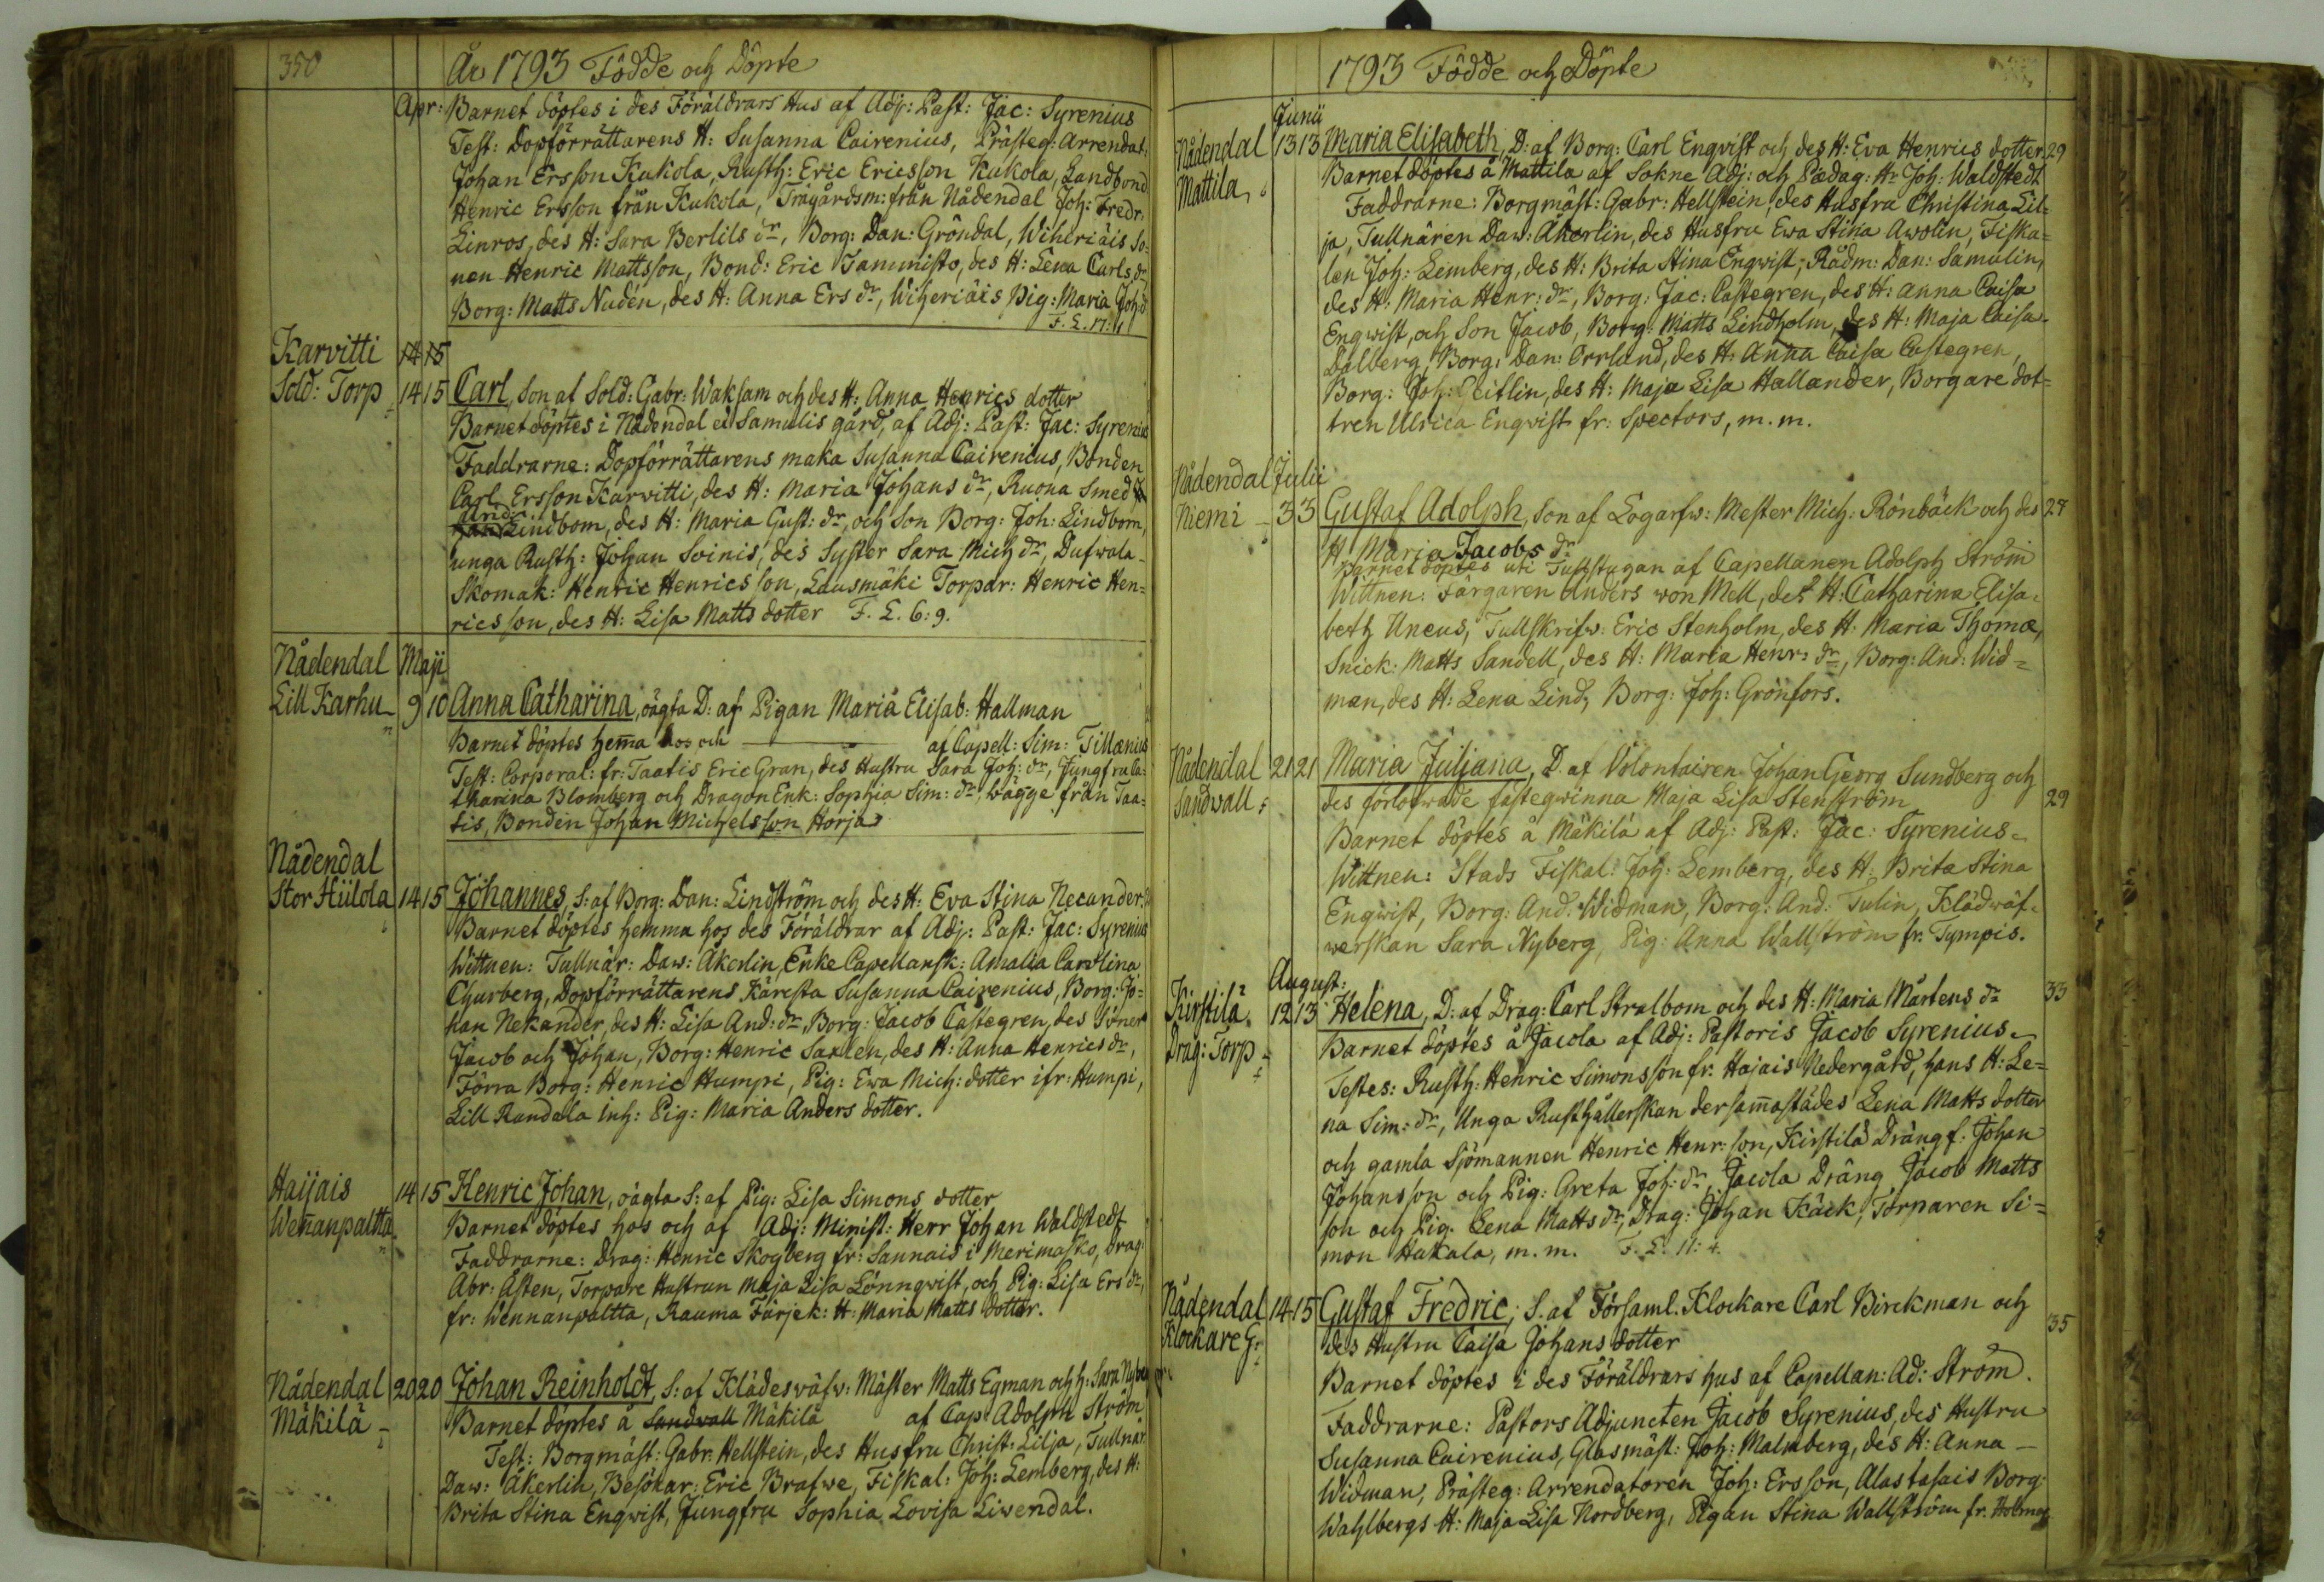 350
År 1793 Födde och Döpte
Apr: Barnet döptes i des Föräldrars Hus af Adj: Past: Jac: Syrenius
Test: Dopförrättarens H: Susanna Cairenius, Prästeg: Arrendat:
Johan Ersson Kukola, Rusth: Eric Ericsson Kukola, Landbond
Henric Ersson från Kukola, Trägårdsm: från Nådendal Joh: Fredr:
Linros, des H: Sara Berlils dr, Borg: Dan: Gröndal, Wiheriäis So-
nen Henric Mattsson, Bond: Eric Tammisto, des H: Lena Carls dr
Borg: Matts Nudén, des H: Anna Ers dr, Wiheriäis Pig: Maria Joh: d
F. L. 17:
Karvitti 14 15
Sold: Torp 14 15 Carl, Son af Sold: Gabr: Waksam och des H: Anna Henrics dotter
Barnet döptes i Nådendal å Samulis gård, af Adj: Past: Jac: Syrenius
Faddrarne: Dopförrättarens maka Susanna Cairenius, Bonden
Carl Ersson Karvitti, des H: Maria Johans dr, Ruona Smed
And: Lindbom, des H: Maria Gust: dr, och Son Borg: Joh: Lindbom,
unga Rusth: Johan Soinis, des Syster Sara Mich dr, Dufwala
Skomak: Henric Henricsson, Lausmäki Torpar: Henric Hen=
ricsson, des H: Lisa Matts dotter F. L. 6: 9.
Nådendal Maji
Lill Karhu 9 10 Anna Catharina, oägta D: af Pigan Maria Elisab: Hallman
Barnet döptes hema hos och af Capell: Sim: Tillænius
Test: Corporal: fr: Taatis Eric Gran, des Hustru Sara Joh: dr, Jungfru Ca-
tharina Blomberg och Dragon Enk: Sophia Sim: dr, bägge från Taa-
tis, Bonden Johan Michelsson Horja
Nådendal
Stor Hiilola 14 15 Johannes, S: af Borg: Dan: Lindström och des H: Eva Stina Necander
Barnet döptes hemma hos des Föräldrar af Adj: Past: Jac: Syrenius
Wittnen: Tullnär: Daw: Åkerlin, Enke Capellansk: Amalia Carolina
Churberg, Dopförrättarens Käresta Susanna Cairenius, Borg: Jo=
han Nekander, des H: Lisa And: dr, Borg: Jacob Castegren, des Söner
Jacob och Johan, Borg: Henric Saxlen, des H: Anna Henrics dr,
Förra Borg: Henric Humpi, Pig: Ewa Mich: dotter ifr: Humpi,
Lill Randala Inh: Pig: Maria Anders dotter.
Haijais 14 15 Henric Johan, oägta S: af Pig: Lisa Simons dotter
Wenanpaltta Barnet döptes hos och af Adj: Minist: Herr Johan Waldstedt
Faddrarne: Drag: Henric Skogberg fr: Sannais i Merimasko, Drag:
Abr: Åsten, Torpare Hustrun Maja Lisa Lönnqvist, och Pig: Lisa Ers dr,
fr: Wennanpaltta, Rauma Färjek: H: Maria Matts dotter.
Nådendal 20 20 Johan Reinholdt, S: af Klädeswäfw: Mäster Matts Egman och H: Sara Nyberg
Mäkilä Barnet döptes å Sandvall Mäkilä af Cap: Adolph Ström
Test: Borgmäst: Gabr: Hellstein, des Husfru Christ: Lilja, Tullnär
Daw: Åkerlin, Besökar: Eric Brafwe, Fiskal: Joh: Lemberg, des H:
Brita Stina Engwist, Jungfru Sophia Lovisa Liwendal.
1793 Födde och Döpte
Junii
Nådendal 13 13 Maria Elisabeth, D: af Borg: Carl Engvist och des H: Eva Henrics dotter 29
Mattila, Barnet döptes å Mattila af Sokne Adj: och Pædag: Hr Joh: Waldstedt
Faddrarne: Borgmäst: Gabr: Hellstein, des Husfru Christina Lil=
ja, Tullnären Daw: Åkerlin, des Husfru Ewa Stina Awolin, Fiska=
len Joh: Lemberg, des H: Brita Stina Engwist, Rådm: Dan: Samulin,
des H: Maria Henr: dr, Borg: Jac: Castegren, des H: Anna Caisa
Engwist, och Son Jacob, Borg: Matts Lindholm, des H: Maja Caisa
Dalberg, Borg: Dan: Orrlund, des H: Anna Caisa Castegren,
Borg: Joh: Leitlin, des H: Maja Lisa Hallander, Borgare dot=
tren Ulrica Engvist fr: Spectors, m. m.
Nådendal Julii
Niemi 3 3 Gustaf Adolph, Son af Logarfw: Mester Mich: Rönbäck och des 28
H Maria Jacobs dr
Barnet döptes uti Tullstugan af Capellanen Adolph Ström
Wittnen: Färgaren Anders von Mell, des H: Catharina Elisa=
beth Uneus, Tullskrifw: Eric Stenholm, des H: Maria Thomæ,
Snick: Matts Sandell, des H: Maria Henr: dr, Borg: And: Wid=
man, des H: Lena Lind, Borg: Joh: Grönfors.
Nådendal 21 21 Maria Juliana, D. af Volontairen Johan Georg Sundberg och
Sandwall des förlofwade fästeqwinna Maja Lisa Stenström 29
Barnet döptes å Mäkilä af Adj: Past: Jac: Syrenius
Wittnen: Stads Fiskal: Joh: Lemberg, des H: Brita Stina
Engwist, Borg: And: Widman, Borg: And: Tulin, Klädwäf=
werskan Sara Nyberg, Pig: Anna Wallström fr: Tympis.
August:
Kirstilä 12 13 Helena, D: af Drag: Carl Stralbom och des H: Maria Mårtens dr 33
Drag: Torp Barnet döptes å Jacola af Adj: Pastoris Jacob Syrenius
Testes: Rusth: Henric Simonsson fr: Hajais Nedergård, hans H: Le=
na Sim: dr, Unga Rusthållerskan dersamastädes Lena Matts dotter
och gamla Sjömannen Henric Henr: son, Kirstilä Dräng f: Johan
Johansson och Pig: Greta Joh: dr, Jacola Dräng Jacob Matts
son och Pig: Lena Matts dr, Drag: Johan Käck, Torparen Si=
mon Hakala, m. m. F. L. 11: 4.
Nådendal 14 15 Gustaf Fredric, S. af Församl. Klockare Carl Birckman och
Klockare G: des Hustru Caisa Johans dotter 35
Barnet döptes i des Föräldrars hus af Capellan: Ad: Ström.
Faddrarne: Pastors Adjuncten Jacob Syrenius, des Hustru
Susanna Cairenius, Glasmäst: Joh: Malmberg, des H: Anna
Widman, Prästeg: Arrendatoren Joh: Ersson, Alastasais Borg:
Wahlbergs H: Maja Lisa Nordberg, Pigan Stina Wallström fr: